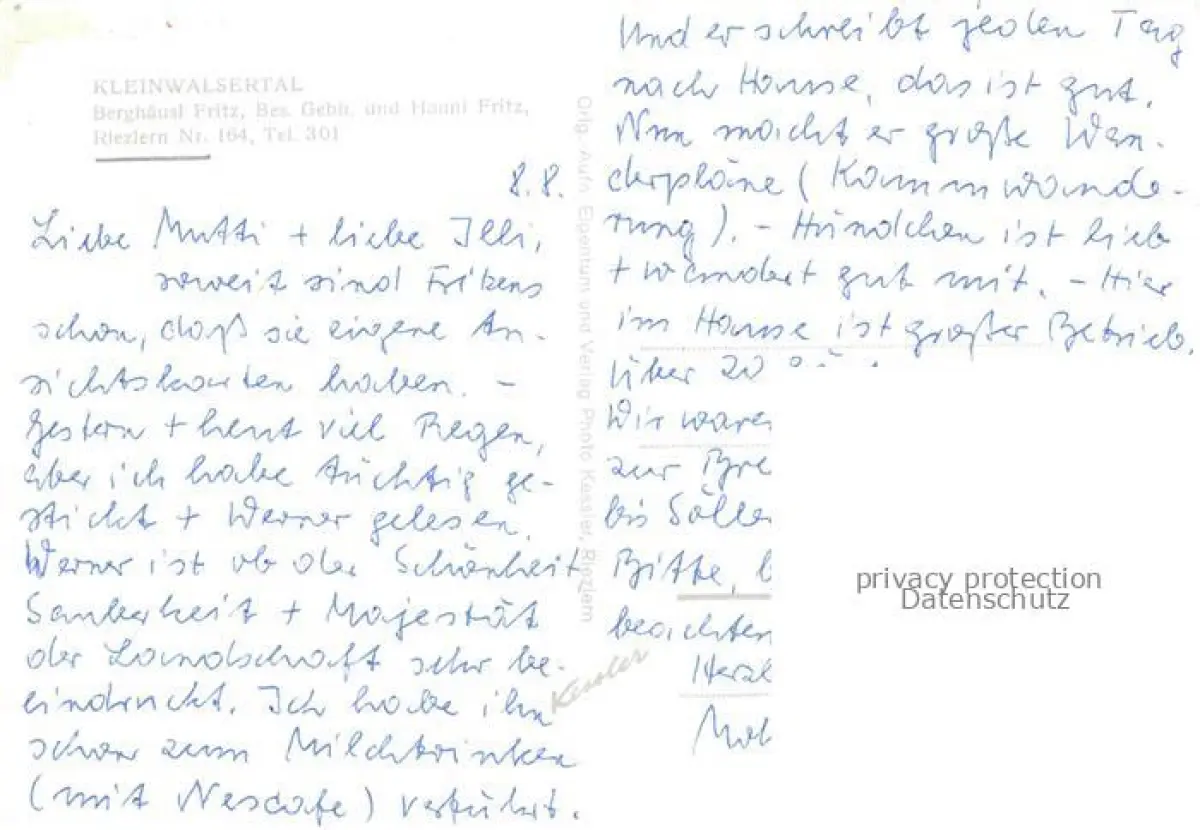 KLEINWALSERTAL
Berghäusl Fritz, Bes. Gebh. und Hanni Fritz,
Riezlern Nr. 164, Tel. 301
8.8.
Liebe Mutti + liebe Illi,
soweit sind Fritzens
schon, daß sie eigene An-
sichtskarten haben. -
Gestern + heut viel Regen,
aber ich habe tüchtig ge-
stickt + Werner gelesen.
Werner ist ob der Schönheit
Sauberkeit + Majestät
der Landschaft sehr be-
eindruckt. Ich habe ihn
schon zum Milchtrinken
(mit Nescafe) verführt.
Orig. Aufn. Eigentum und Verlag Photo Kessler, Riezlern
Kessler
Und er schreibt jeden Tag
nach Hause, das ist gut.
Nun macht er große Wan-
derpläne (Kammwande-
rung). - Hündchen ist lieb
+ wandert gut mit. - Hier
im Hause ist großer Betrieb.
Über 20
Wir waren
zur Bre
bis Söller
Bitte, b
beachten
Herzl
privacy protection
Datenschutz